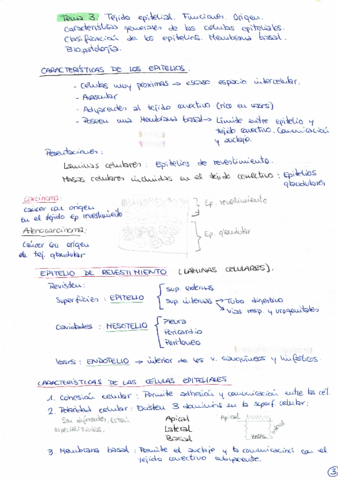 Tema 3. Tejido epitelial. Funciones. Origen.
Características generales de las células epiteliales.
Clasificación de los epitelios. Membrana basal.
Biopatología.
CARACTERÍSTICAS DE LOS EPITELIOS
- Células muy próximas → escaso espacio intercelular.
- Avascular
- Adyacentes al tejido conectivo (rico en vasos)
- Poseen una Membrana basal → Límite entre epitelio y
tejido conectivo. Comunicación
y anclaje.
Presentaciones:
Láminas celulares: Epitelios de revestimiento.
Masas celulares incluidas en el tejido conectivo: Epitelios
glandulares
Carcinoma:
cáncer con origen
en el tejido ep revestimiento
Ep. revestimiento
Adenocarcinoma:
Cáncer con origen
de tej. glandular
Ep. glandular
EPITELIO DE REVESTIMIENTO (LÁMINAS CELULARES).
Revisten:
Superficies: EPITELIO
sup externas
sup internas → Tubo digestivo
→ Vías resp. y urogenitales
Cavidades: MESOTELIO
Pleura
Pericardio
Peritoneo
Vasos: ENDOTELIO → interior de los v. sanguíneos y linfáticos.
CARACTERÍSTICAS DE LAS CÉLULAS EPITELIALES
1. Cohesión celular: Permite adhesión y comunicación entre las cél.
2. Polaridad celular: Existen 3 dominios en la superf celular.
Apical
Lateral
Basal
Apical
3. Membrana basal: Permite el anclaje y la comunicación con el
tejido conectivo adyacente.
3